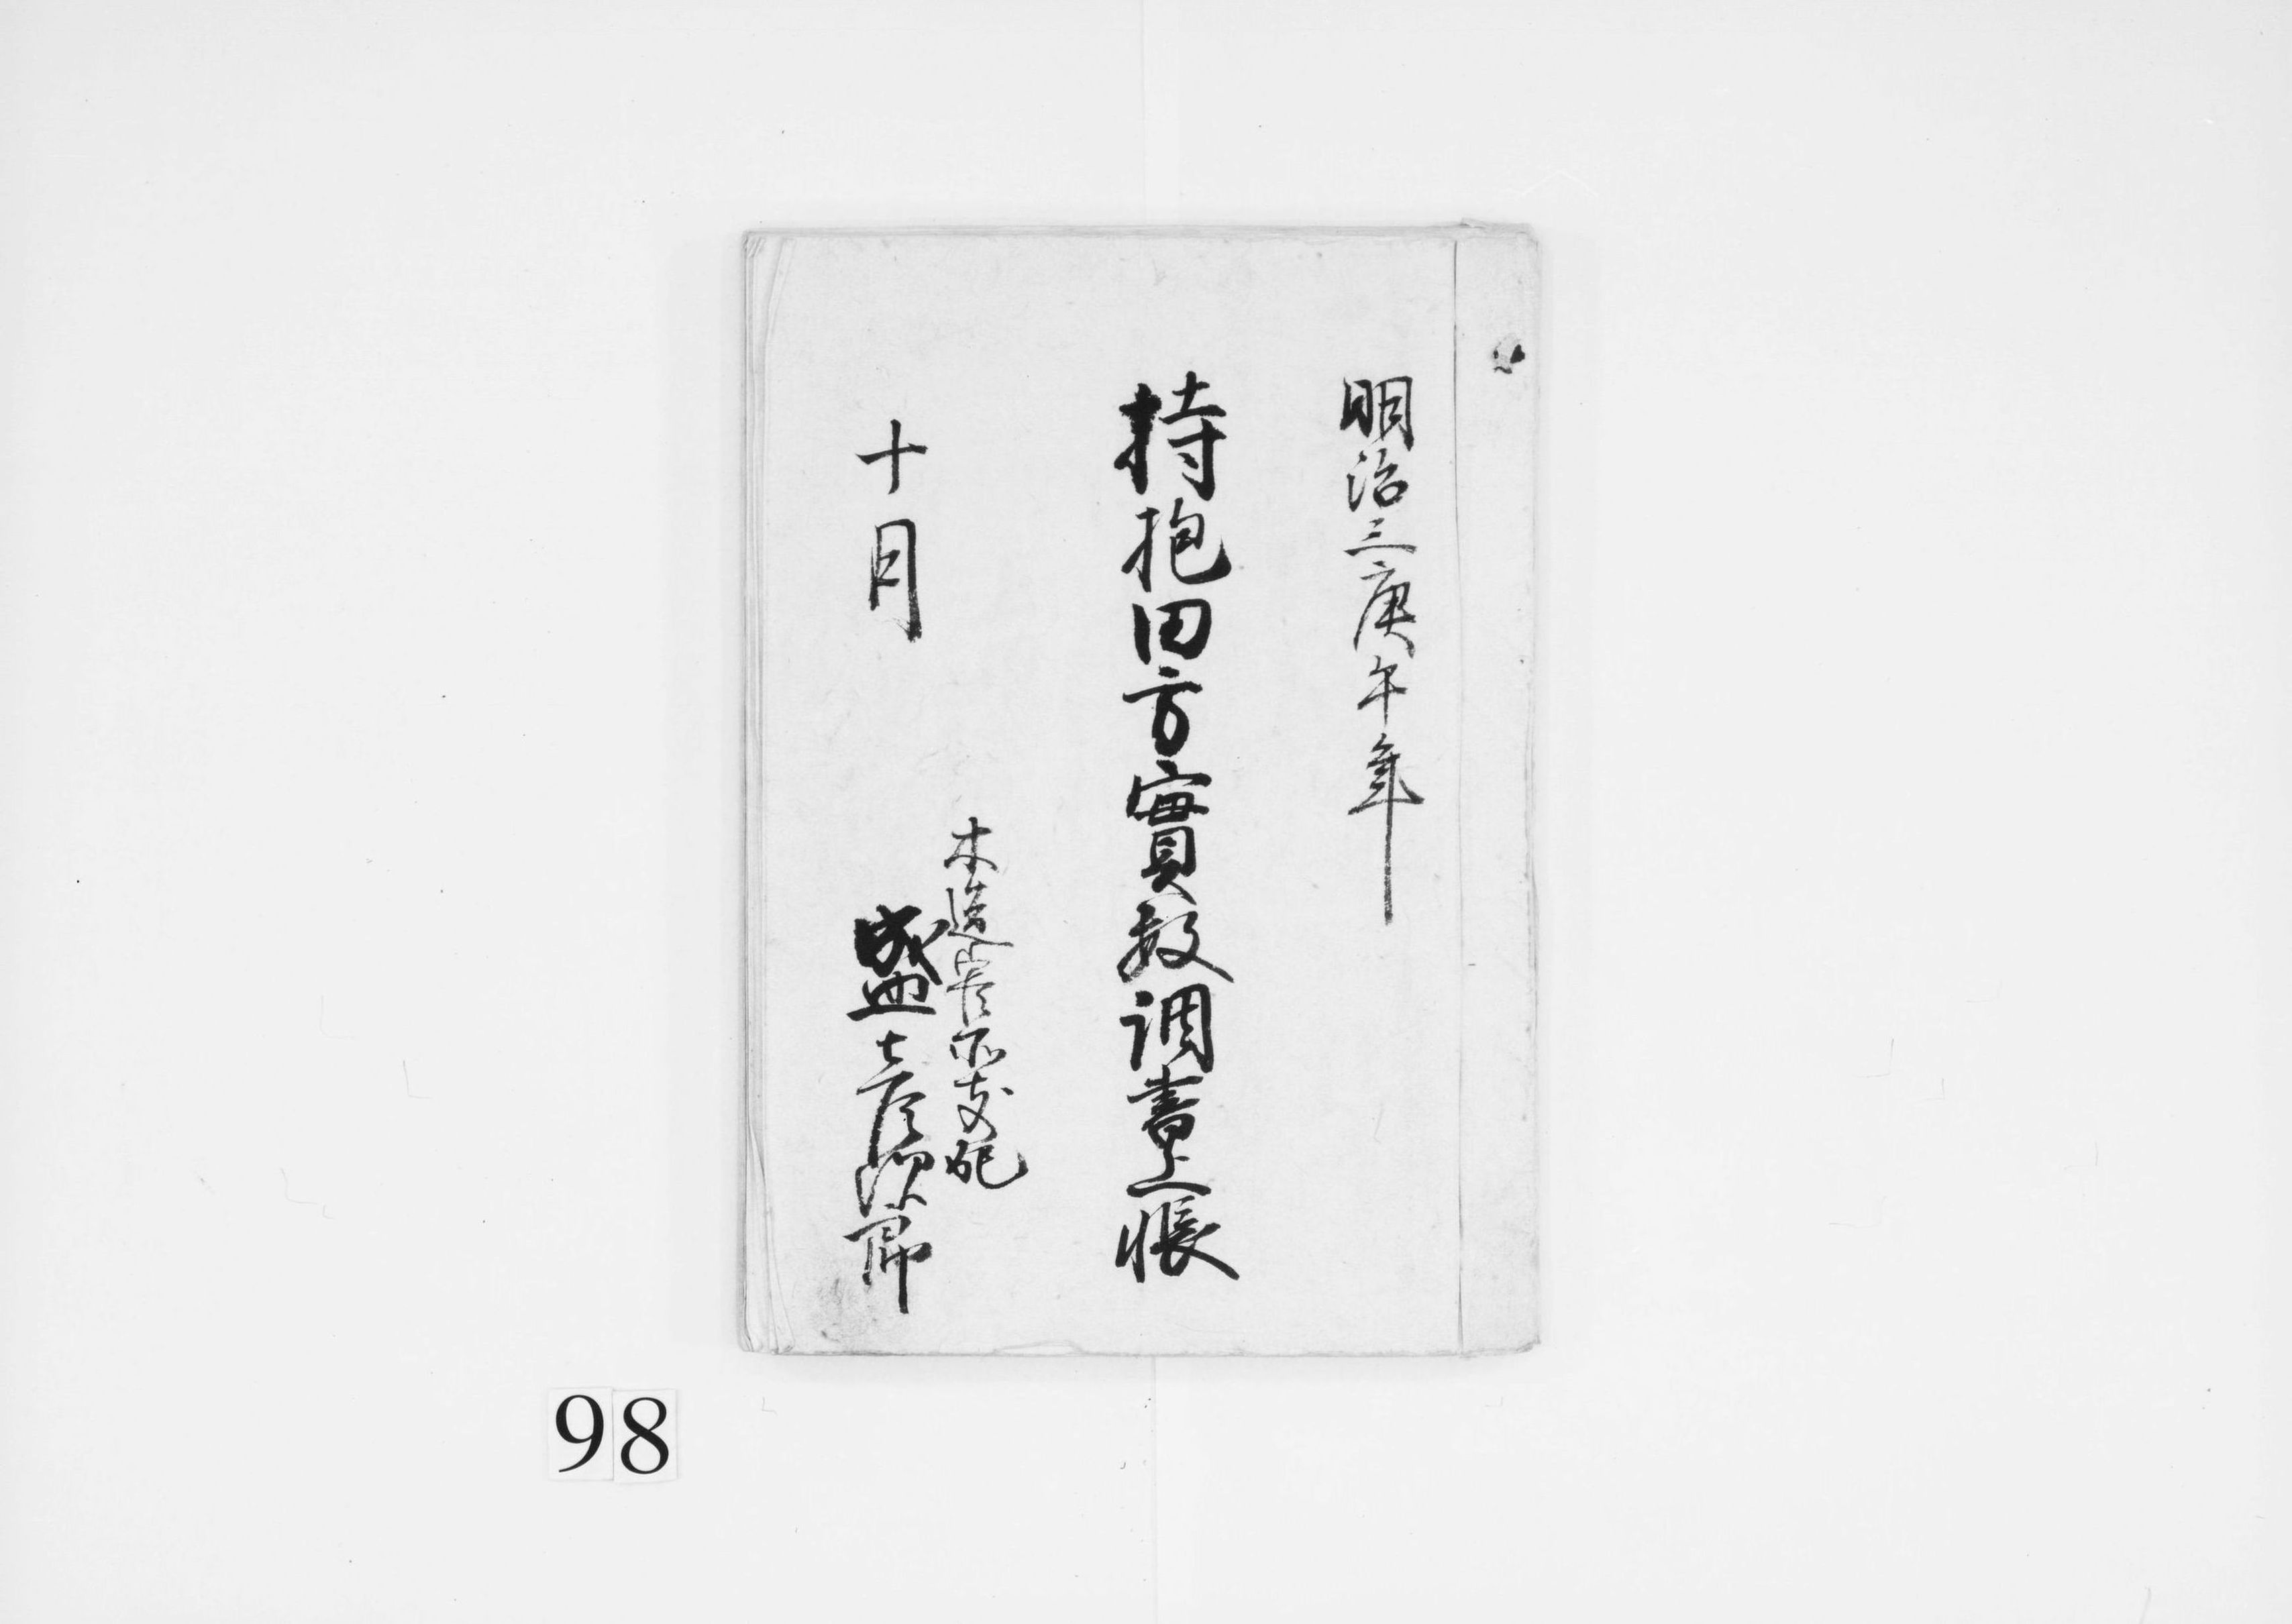 明治三庚午年
持抱田方實数調書上帳
十月
木造常所支配
盛七彦次郎
98